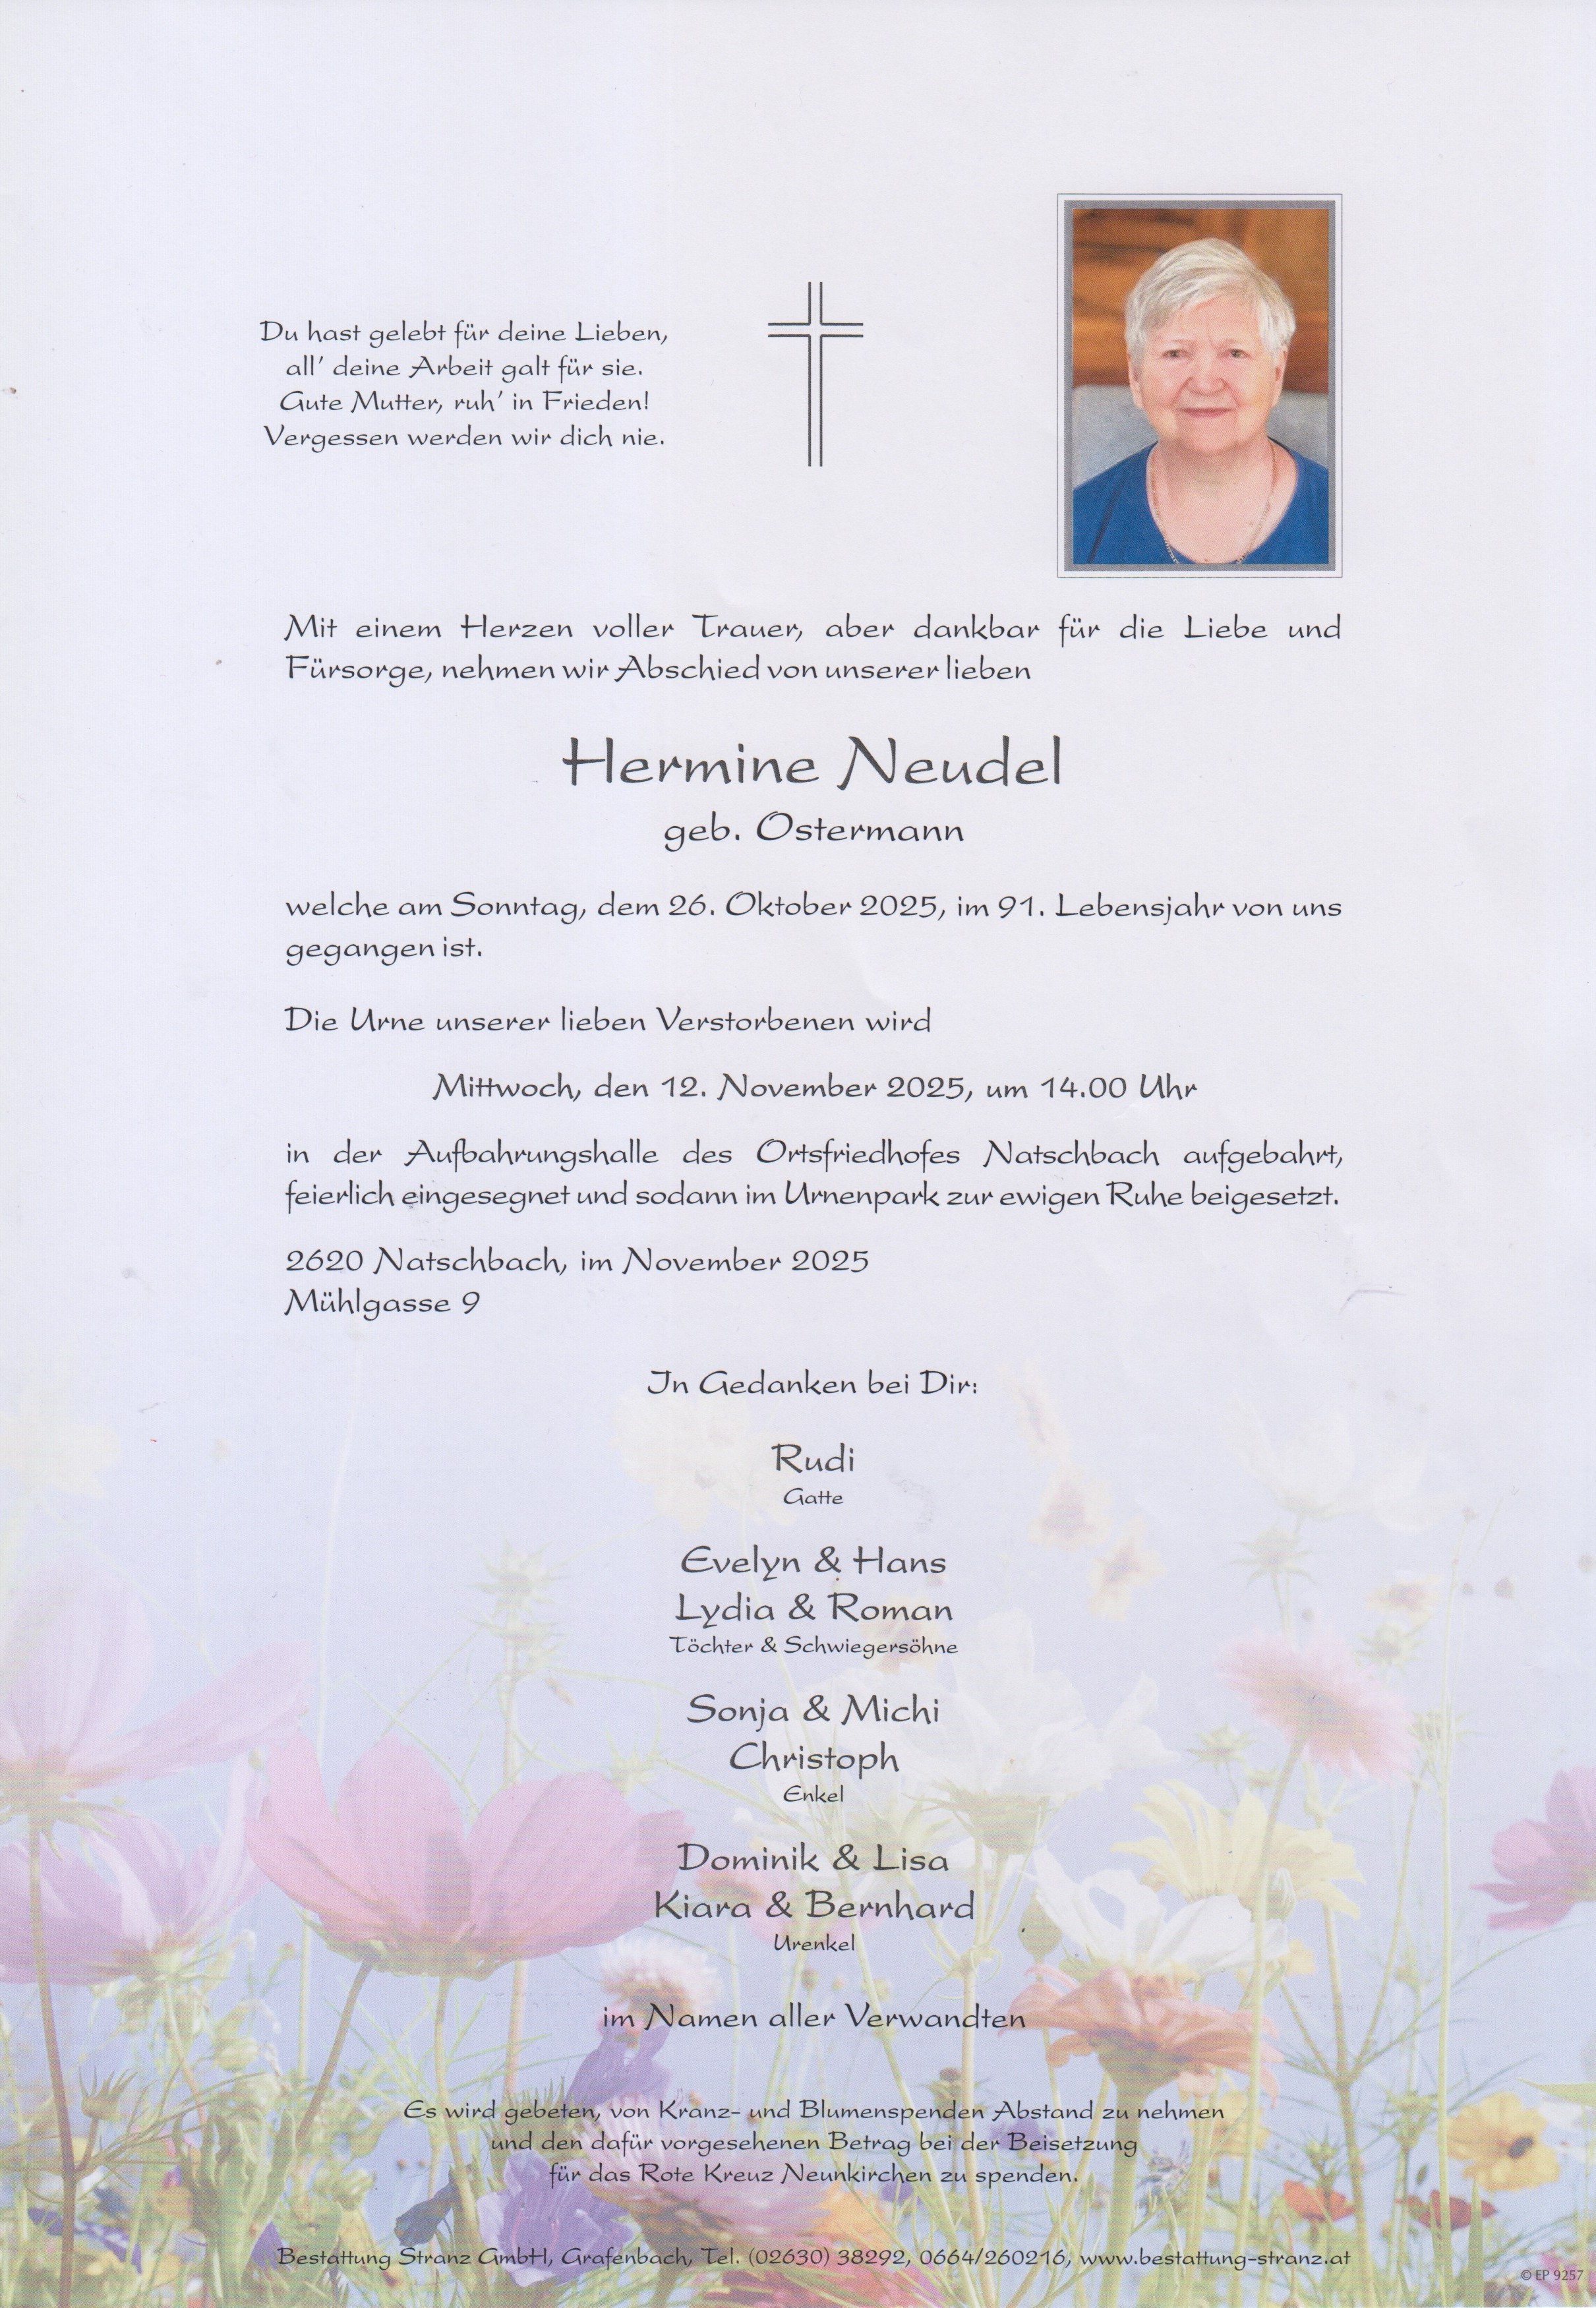 Du hast gelebt für deine Lieben,
all' deine Arbeit galt für sie.
Gute Mutter, ruh' in Frieden!
Vergessen werden wir dich nie.
Mit einem Herzen voller Trauer, aber dankbar für die Liebe und
Fürsorge, nehmen wir Abschied von unserer lieben
Hermine Neudel
geb. Ostermann
welche am Sonntag, dem 26. Oktober 2025, im 91. Lebensjahr von uns
gegangen ist.
Die Urne unserer lieben Verstorbenen wird
Mittwoch, den 12. November 2025, um 14.00 Uhr
in der Aufbahrungshalle des Ortsfriedhofes Natschbach aufgebahrt,
feierlich eingesegnet und sodann im Urnenpark zur ewigen Ruhe beigesetzt.
2620 Natschbach, im November 2025
Mühlgasse 9
In Gedanken bei Dir:
Rudi
Gatte
Evelyn & Hans
Lydia & Roman
Töchter & Schwiegersöhne
Sonja & Michi
Christoph
Enkel
Dominik & Lisa
Kiara & Bernhard
Urenkel
im Namen aller Verwandten
Es wird gebeten, von Kranz- und Blumenspenden Abstand zu nehmen
und den dafür vorgesehenen Betrag bei der Beisetzung
für das Rote Kreuz Neunkirchen zu spenden.
Bestattung Stranz GmbH, Grafenbach, Tel. (02630) 38292, 0664/260216, www.bestattung-stranz.at
© EP 9257